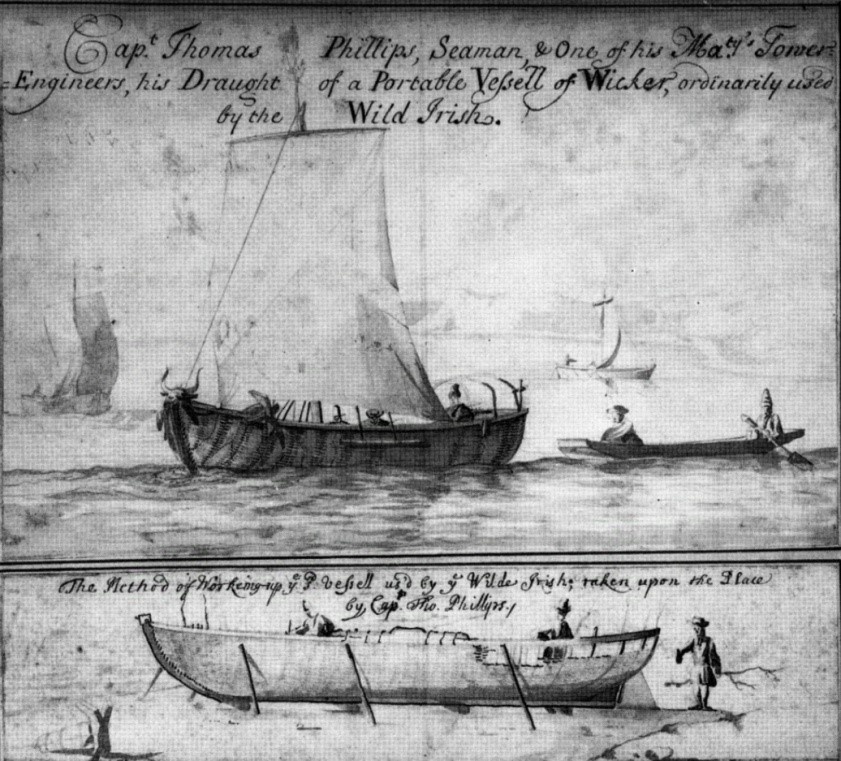 Cap.t Thomas Phillips, Seaman, & One of his Ma.ty's Tower-
=Engineers, his Draught of a Portable Veſsell of Wicker, ordinarily used
by the Wild Irish.
The Method of Workeing-up ye P. veſsell us'd by ye Wilde Irish; taken upon the Place
by Cap.t Tho. Phillips.